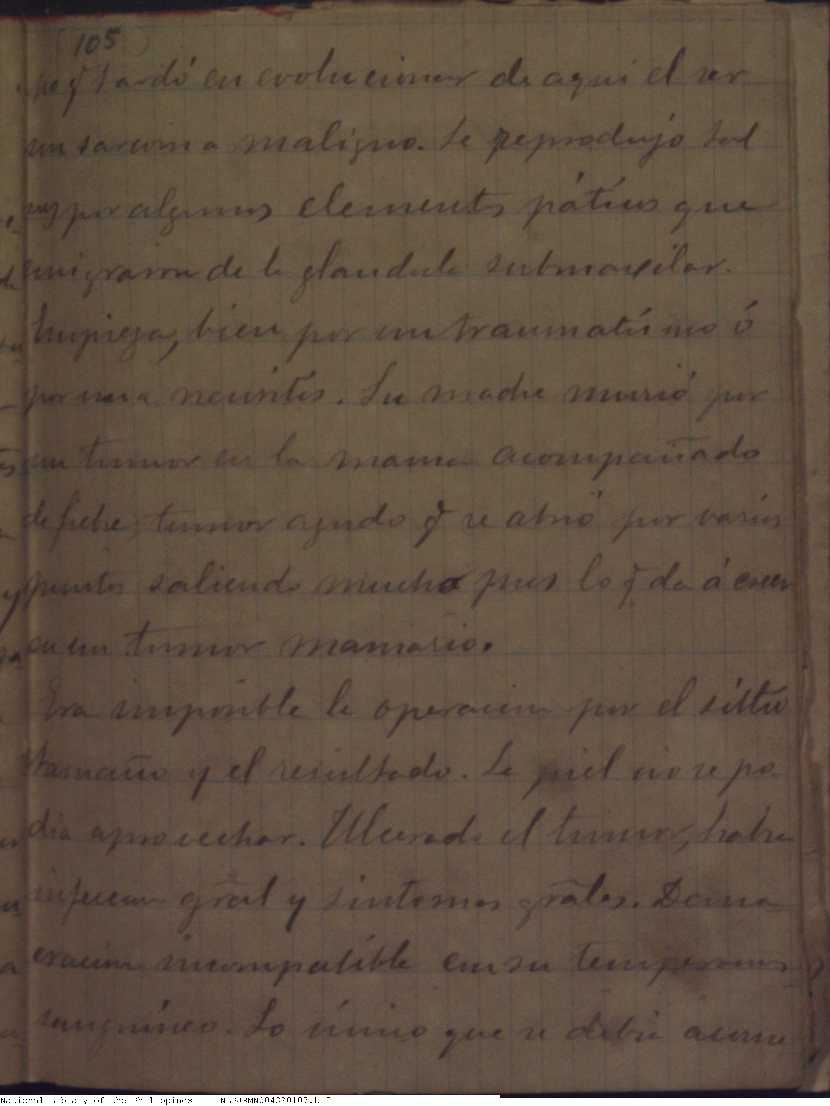 105
q̃ tardó en evolucionar de aqui el ser
un sarcoma maligno. Se reprodujo tal
vez por algunos elementos que
emigraron de la glandula submaxilar.
Empieza, bien por un traumatismo ó
por una neuritis. Su madre murió por
un tumor en la mama acompañado
de fiebre, tumor agudo q̃ se abrió por varios
puntos saliendo mucho pus lo q̃ da á creer
en un tumor mamario.
Era imposible la operacion por el sittio
tamaño y el resultado. La piel no se po
dia aprovechar. Ulcerado el tumor, habia
infeccion gral y sintomas grales. Dema
cracion incompatible con su temperamento
sanguineo. Lo único que se debia
National Library of the Philippines